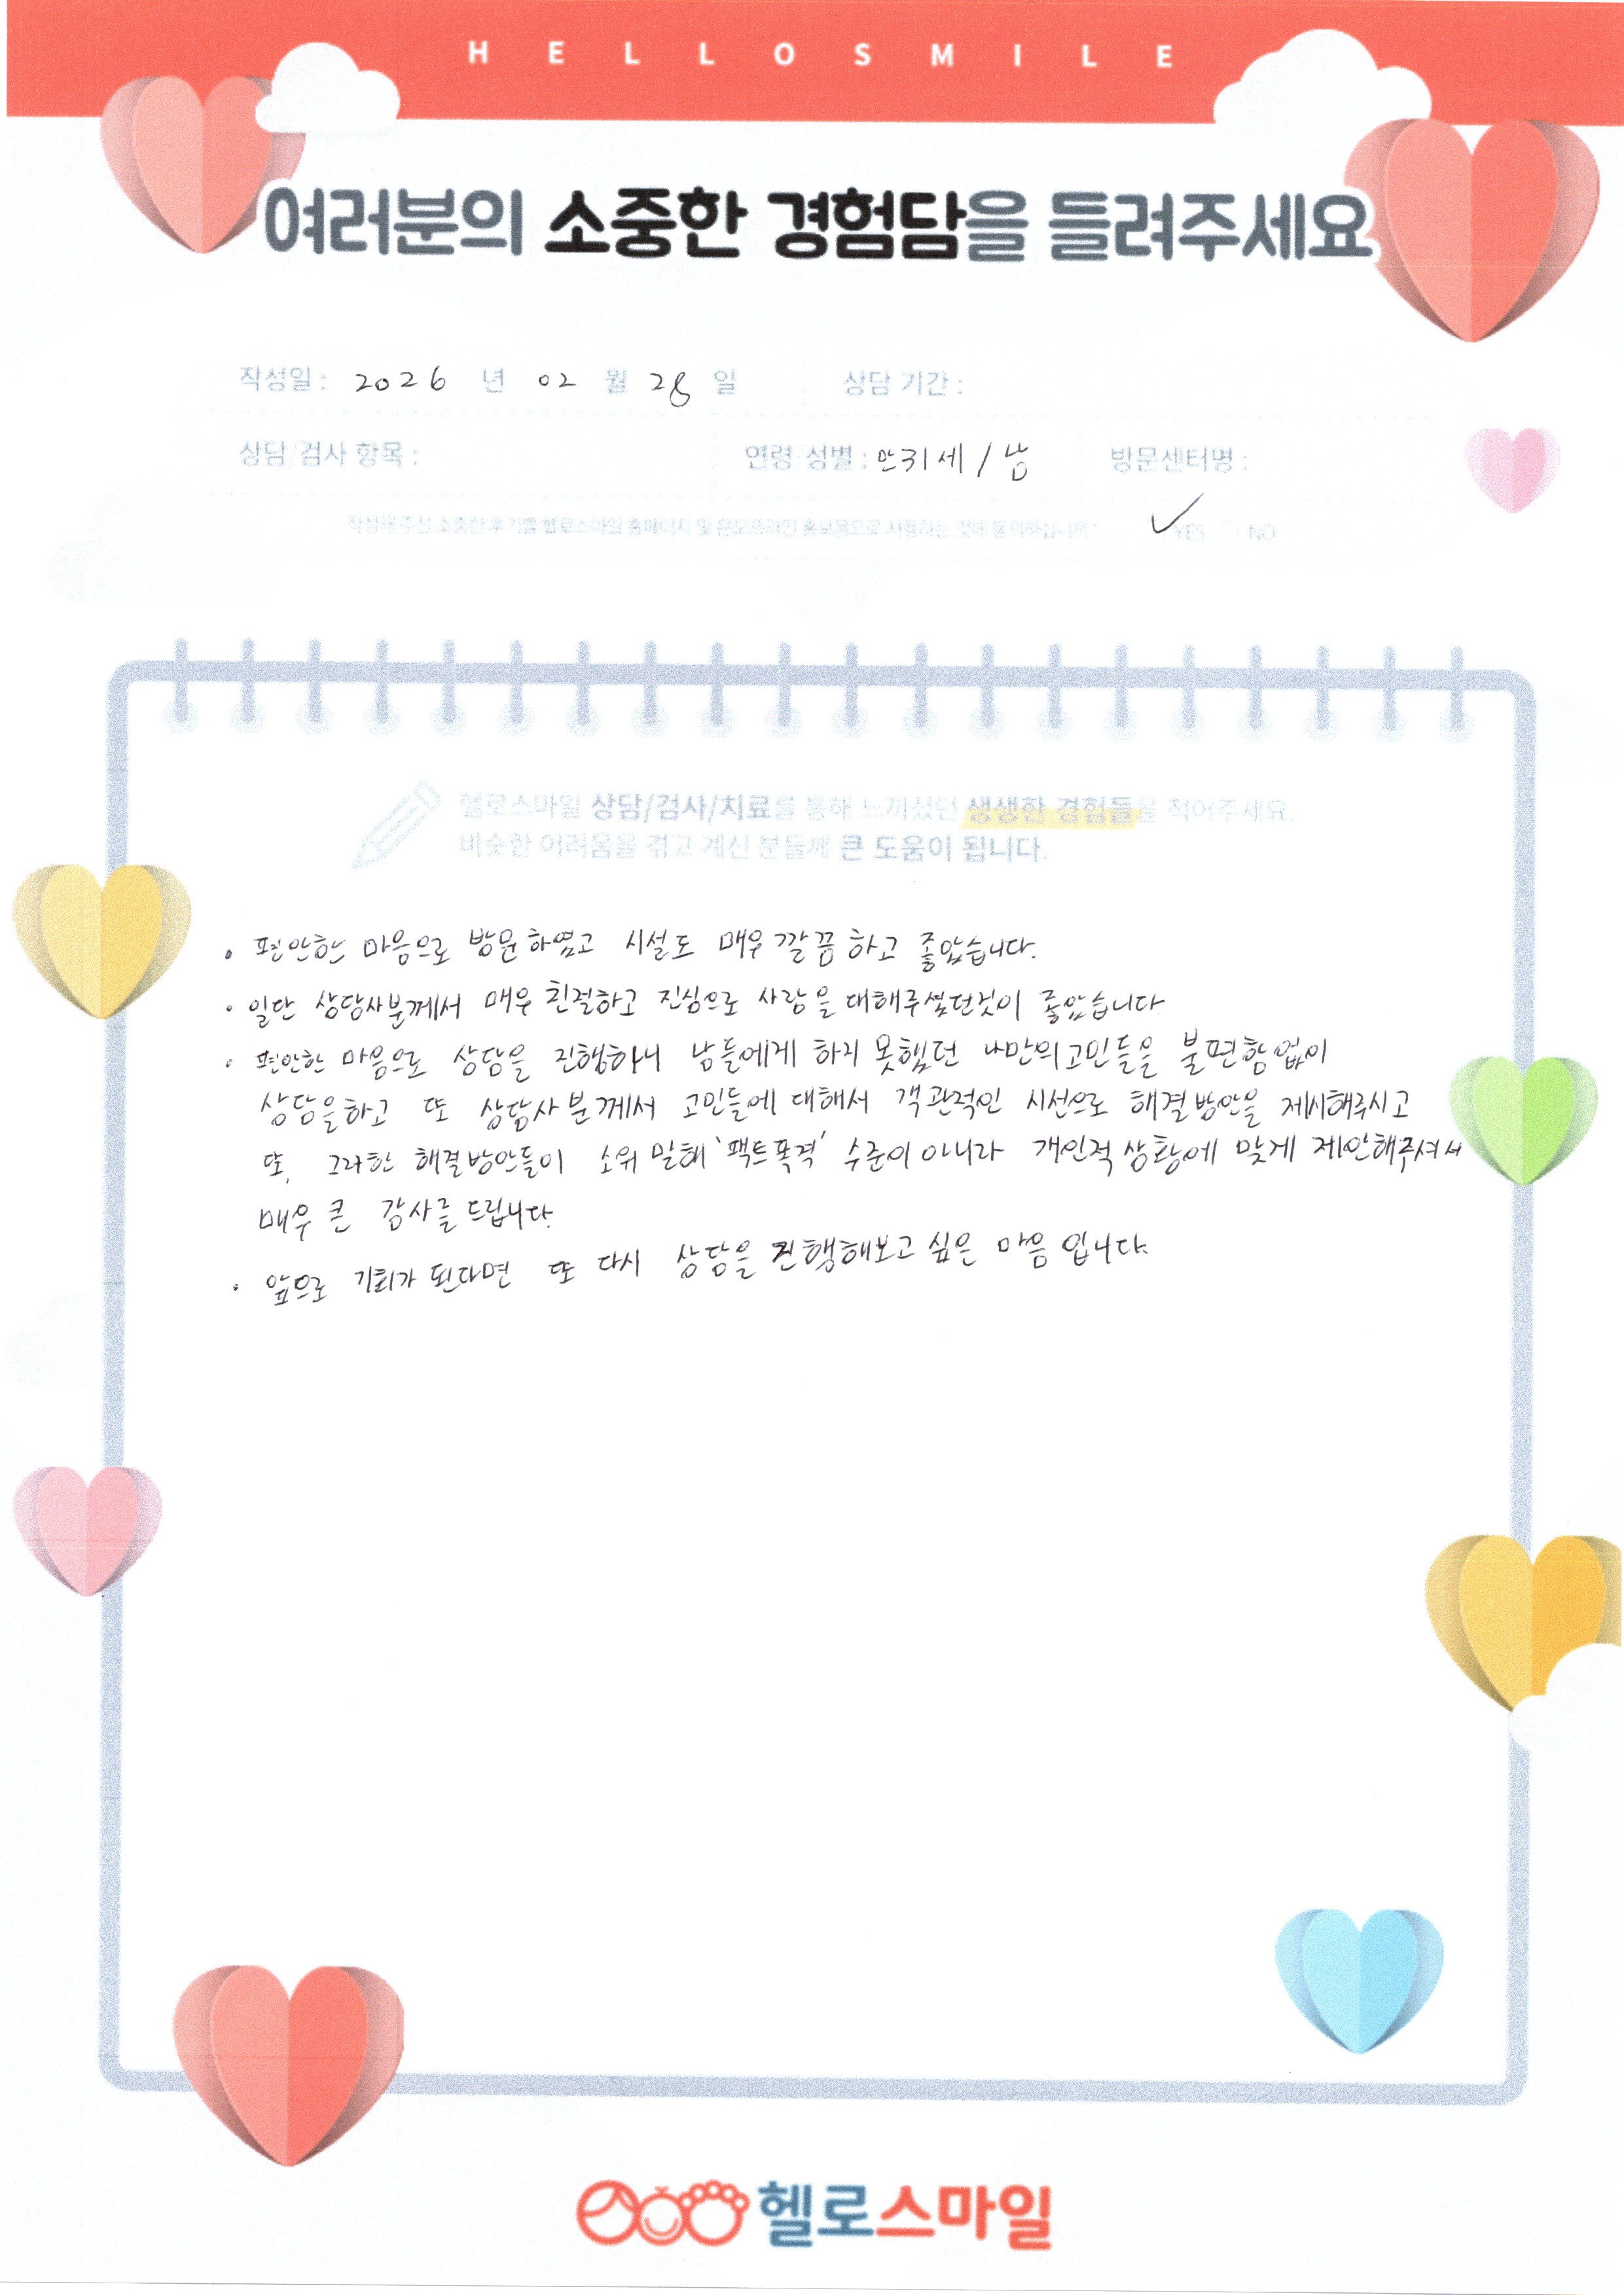 HELLOSMILE
여러분의 소중한 경험담을 들려주세요
작성일 : 2026 년 02 월 28 일 상담 기간 :
상담 검사 항목 : 연령 성별 : 만31세 / 남 방문센터명 :
작성해주신 소중한 후기를 헬로스마일 홈페이지 및 온오프라인 홍보용으로 사용하는 것에 동의하십니까? ✓ YES □ NO
헬로스마일 상담/검사/치료를 통해 느끼셨던 생생한 경험들을 적어주세요.
비슷한 어려움을 겪고 계신 분들께 큰 도움이 됩니다.
• 편안한 마음으로 방문하였고 시설도 매우 깔끔하고 좋았습니다.
• 일단 상담사분께서 매우 친절하고 진심으로 사람을 대해주셨던것이 좋았습니다
• 편안한 마음으로 상담을 진행하니 남들에게 하지 못했던 나만의 고민들을 불편함없이
상담을하고 또 상담사분께서 고민들에 대해서 객관적인 시선으로 해결방안을 제시해주시고
또, 그러한 해결방안들이 소위 말해 '팩트폭격' 수준이 아니라 개인적 상황에 맞게 제안해주셔서
매우 큰 감사를 드립니다.
• 앞으로 기회가 된다면 또 다시 상담을 진행해보고 싶은 마음입니다.
헬로스마일